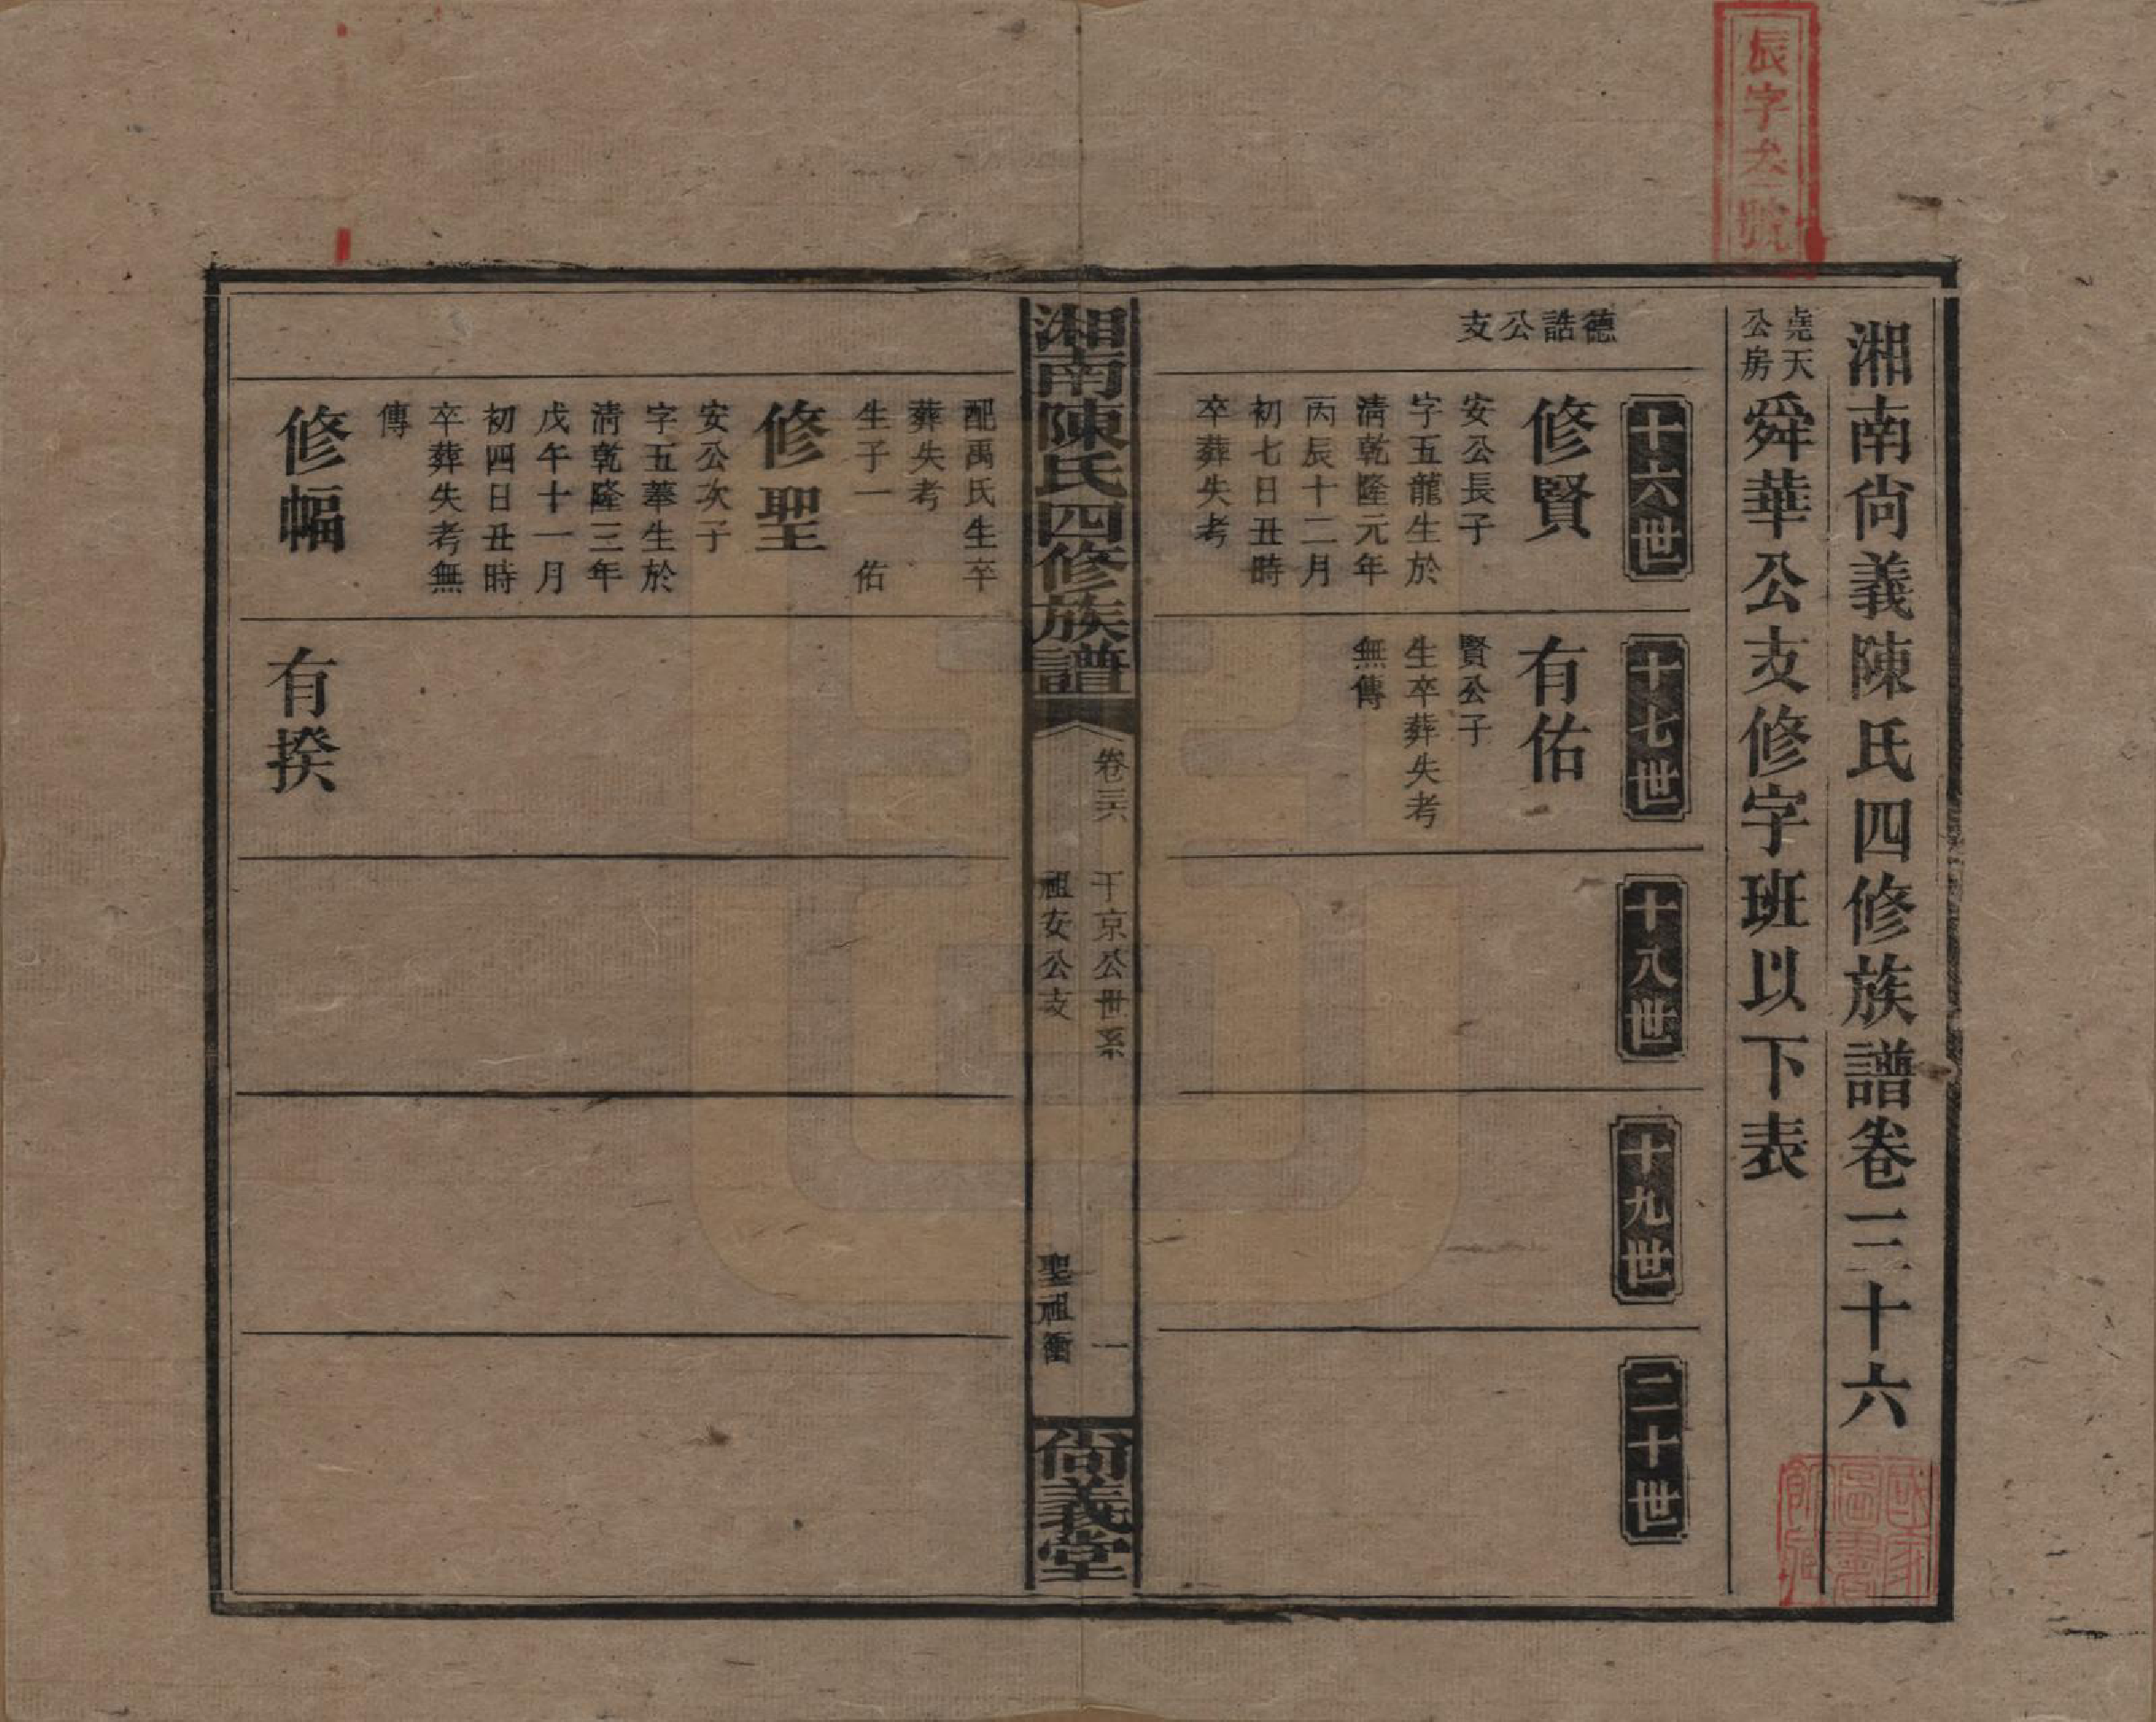 辰字叁號
湘南尙義陳氏四修族譜卷三十六
堯天公房
舜華公支修字班以下表
德誥公支
十六世
修賢
安公長子
字五龍生於
淸乾隆元年
丙辰十二月
初七日丑時
卒葬失考
十七世
有佑
賢公子
生卒葬失考
無傳
十八世
十九世
二十世
湘南陳氏四修族譜
卷三六
于京公世系
祖安公支
聖祖衝
一
尙義堂
配禹氏生卒
葬失考
生子一 佑
修聖
安公次子
字五華生於
淸乾隆三年
戊午十一月
初四日丑時
卒葬失考無
傳
修幅
有揆
國家圖書館藏